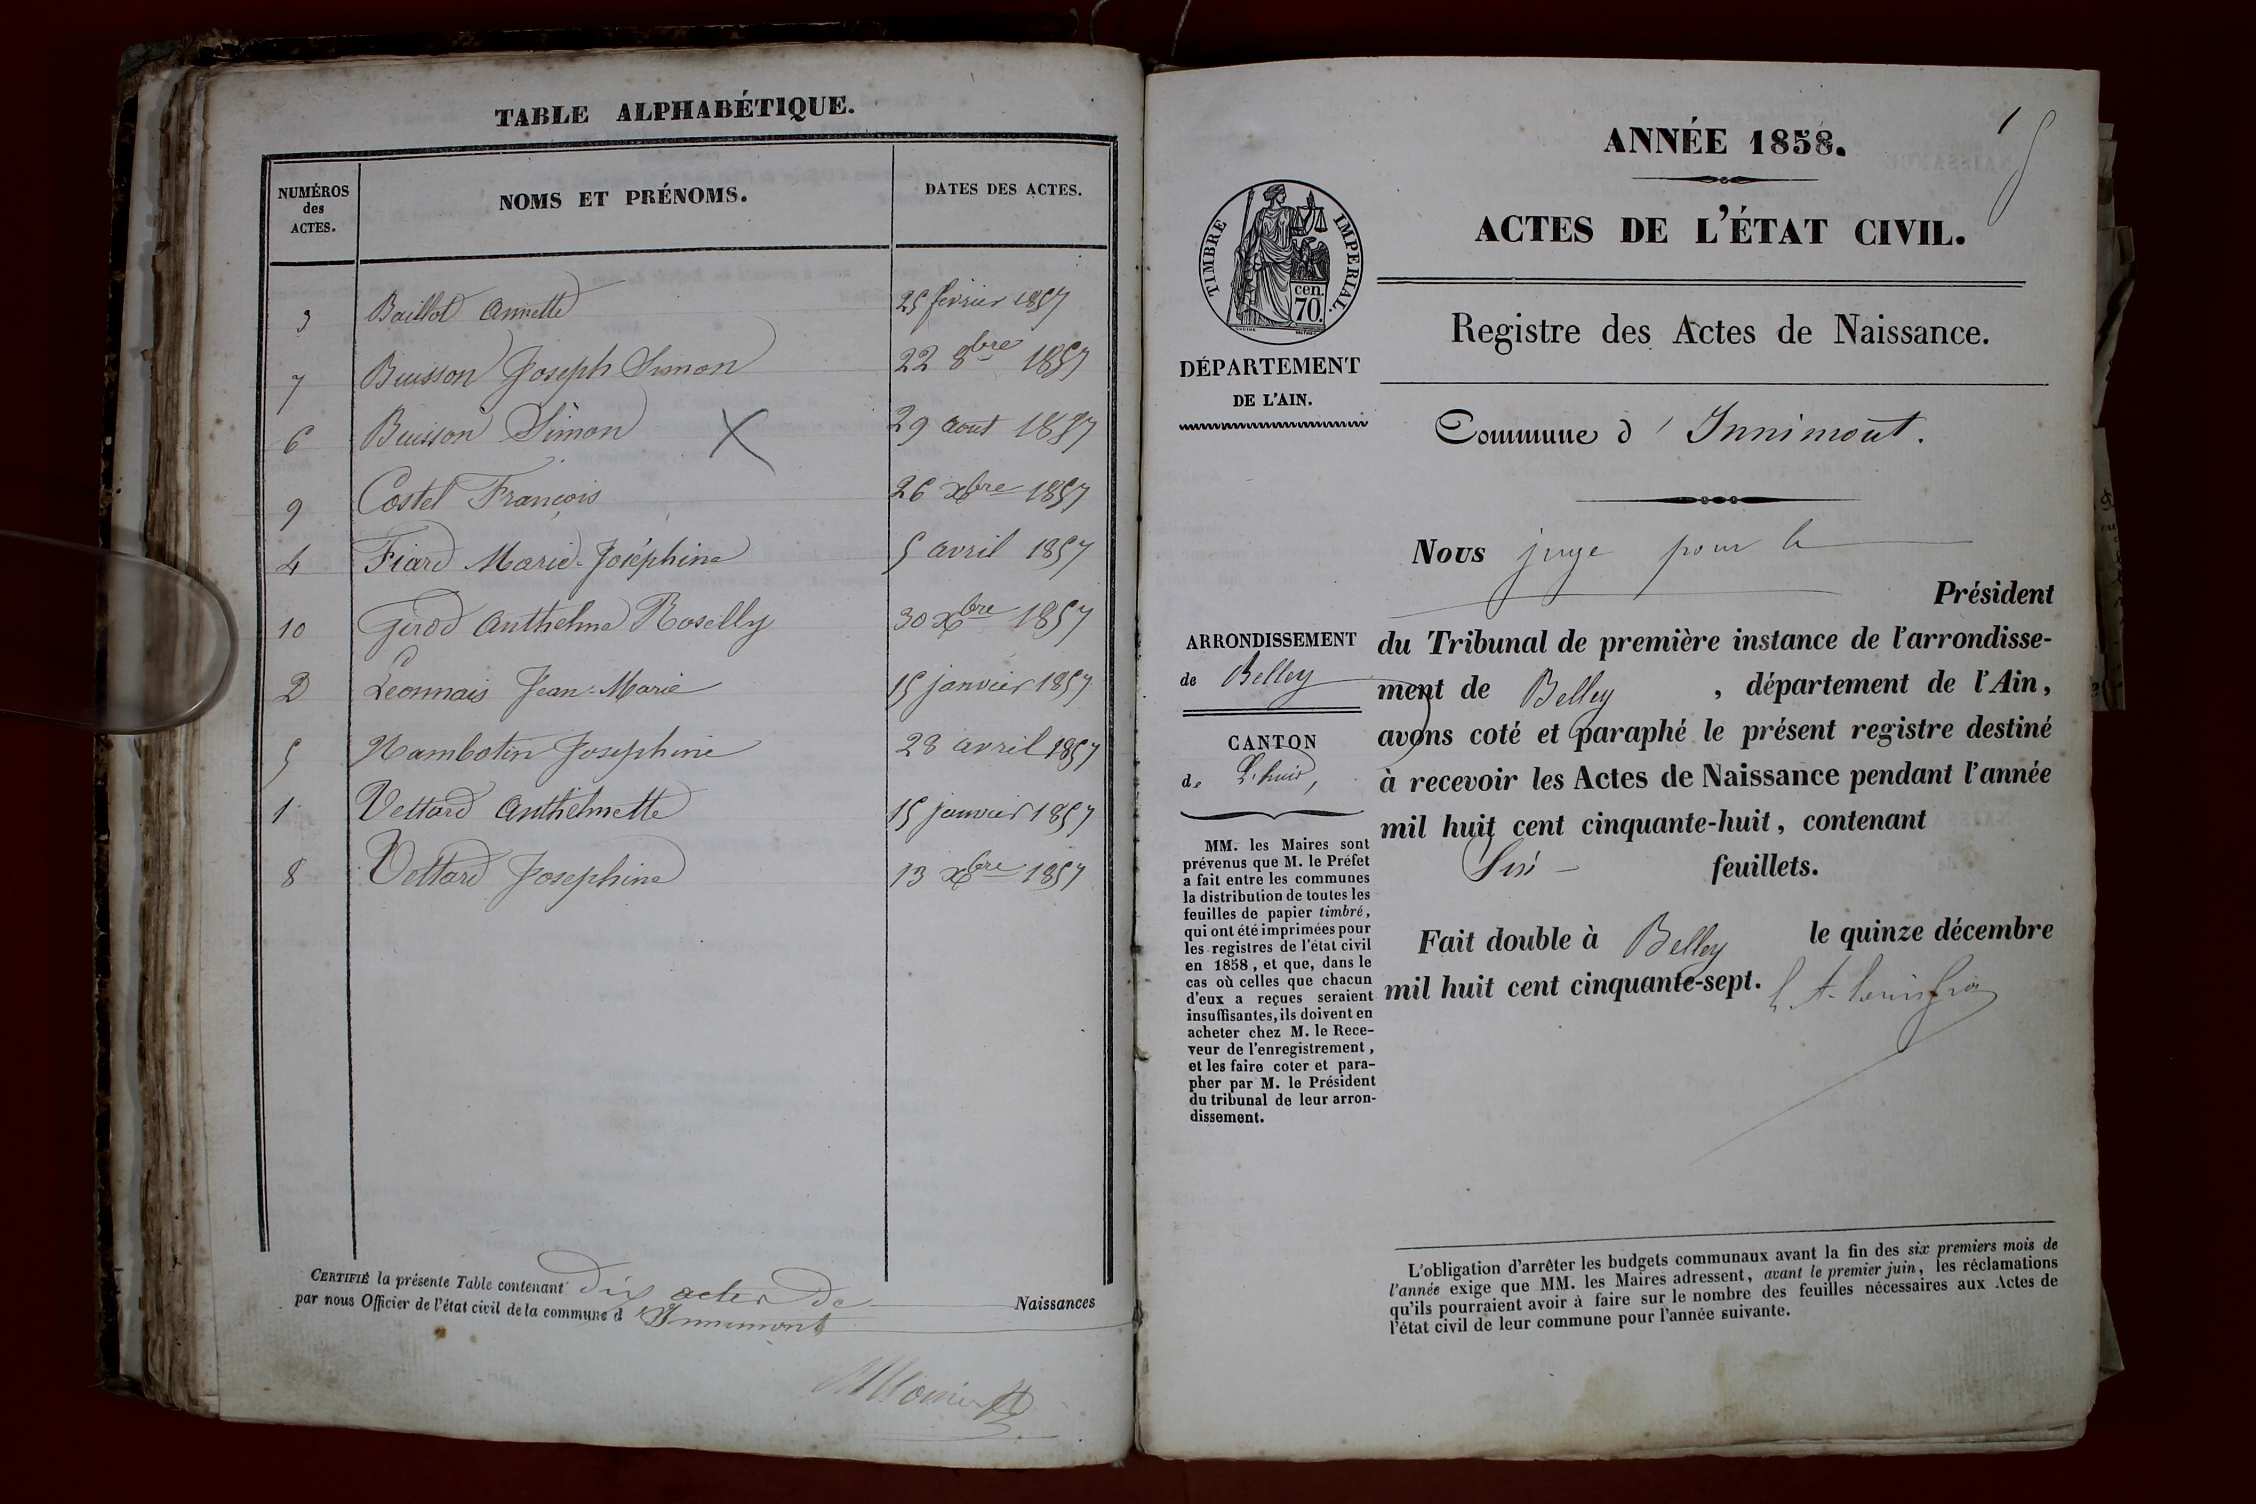 TABLE ALPHABÉTIQUE.
NUMÉROS des ACTES. NOMS ET PRÉNOMS. DATES DES ACTES.
3 Baillot Annette 25 février 1857
7 Buisson Joseph Simon 22 8bre 1857
6 Buisson Simon X 29 aout 1857
9 Costel François 26 xbre 1857
4 Fiard Marie-Joséphine 5 avril 1857
10 Girod Anthelme Roselly 30 xbre 1857
2 Leonnais Jean-Marie 15 janvier 1857
5 Nambotin Josephine 28 avril 1857
1 Vettard Anthelmette 15 janvier 1857
8 Vettard Josephine 13 xbre 1857
CERTIFIÉ la présente Table contenant dix actes de Naissances
par nous Officier de l'état civil de la commune d'Innimont
1
ANNÉE 1858.
ACTES DE L'ÉTAT CIVIL.
TIMBRE IMPERIAL.
cen.
70.
Registre des Actes de Naissance.
DÉPARTEMENT
DE L'AIN.
Commune d'Innimont.
Nous juge pour le
Président
du Tribunal de première instance de l'arrondisse-
ment de Belley, département de l'Ain,
avons coté et paraphé le présent registre destiné
à recevoir les Actes de Naissance pendant l'année
mil huit cent cinquante-huit, contenant
Six feuillets.
Fait double à Belley le quinze décembre
mil huit cent cinquante-sept.
ARRONDISSEMENT
de Belley
CANTON
de L'huis,
MM. les Maires sont
prévenus que M. le Préfet
a fait entre les communes
la distribution de toutes les
feuilles de papier timbré,
qui ont été imprimées pour
les registres de l'état civil
en 1858, et que, dans le
cas où celles que chacun
d'eux a reçues seraient
insuffisantes, ils doivent en
acheter chez M. le Rece-
veur de l'enregistrement,
et les faire coter et para-
pher par M. le Président
du tribunal de leur arron-
dissement.
L'obligation d'arrêter les budgets communaux avant la fin des six premiers mois de
l'année exige que MM. les Maires adressent, avant le premier juin, les réclamations
qu'ils pourraient avoir à faire sur le nombre des feuilles nécessaires aux Actes de
l'état civil de leur commune pour l'année suivante.